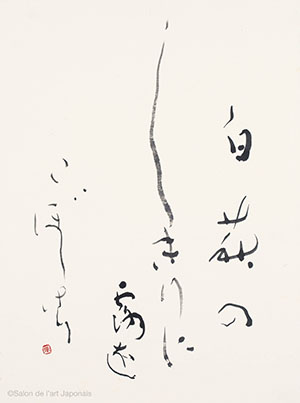 白萩の
しきりに
露を
こぼしけり
©Salon de l'art Japonais